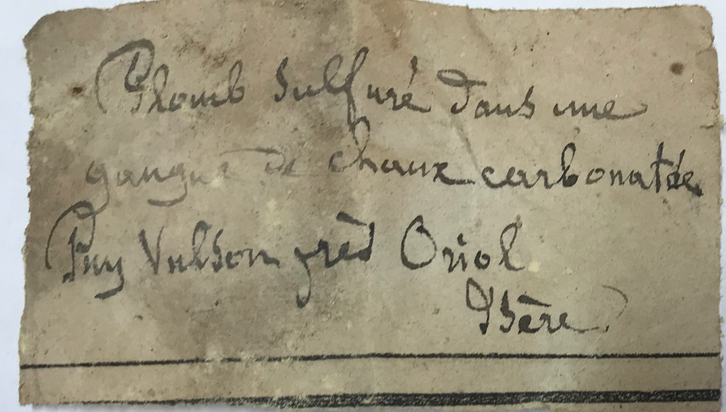 Plomb Sulfuré dans une
gangue de chaux carbonatée
Puy Vulson près Oriol
Isère